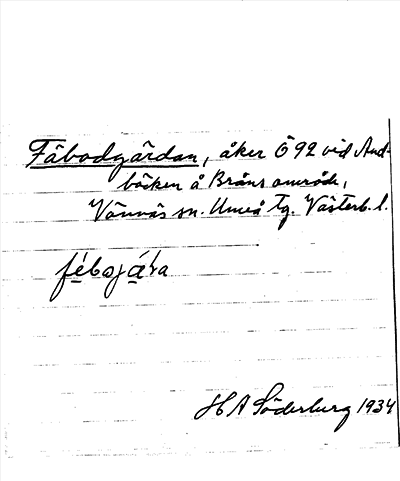 Fäbodgärdan, åker Ö 92 vid And-
bäcken å Bräns område,
Vännäs sn. Umeå tg. Västerb. l.
H A Söderburg 1934